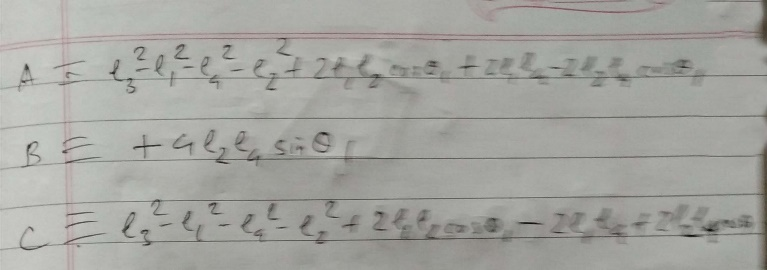 A ≡ l₃² - l₁² - l₄² - l₂² + 2l₁l₂cosθ₁ + 2l₁l₄ - 2l₂l₄cosθ₁
B ≡ + 4l₂l₄ sinθ₁
C ≡ l₃² - l₁² - l₄² - l₂² + 2l₁l₂cosθ₁ - 2l₁l₄ + 2l₂l₄cosθ₁